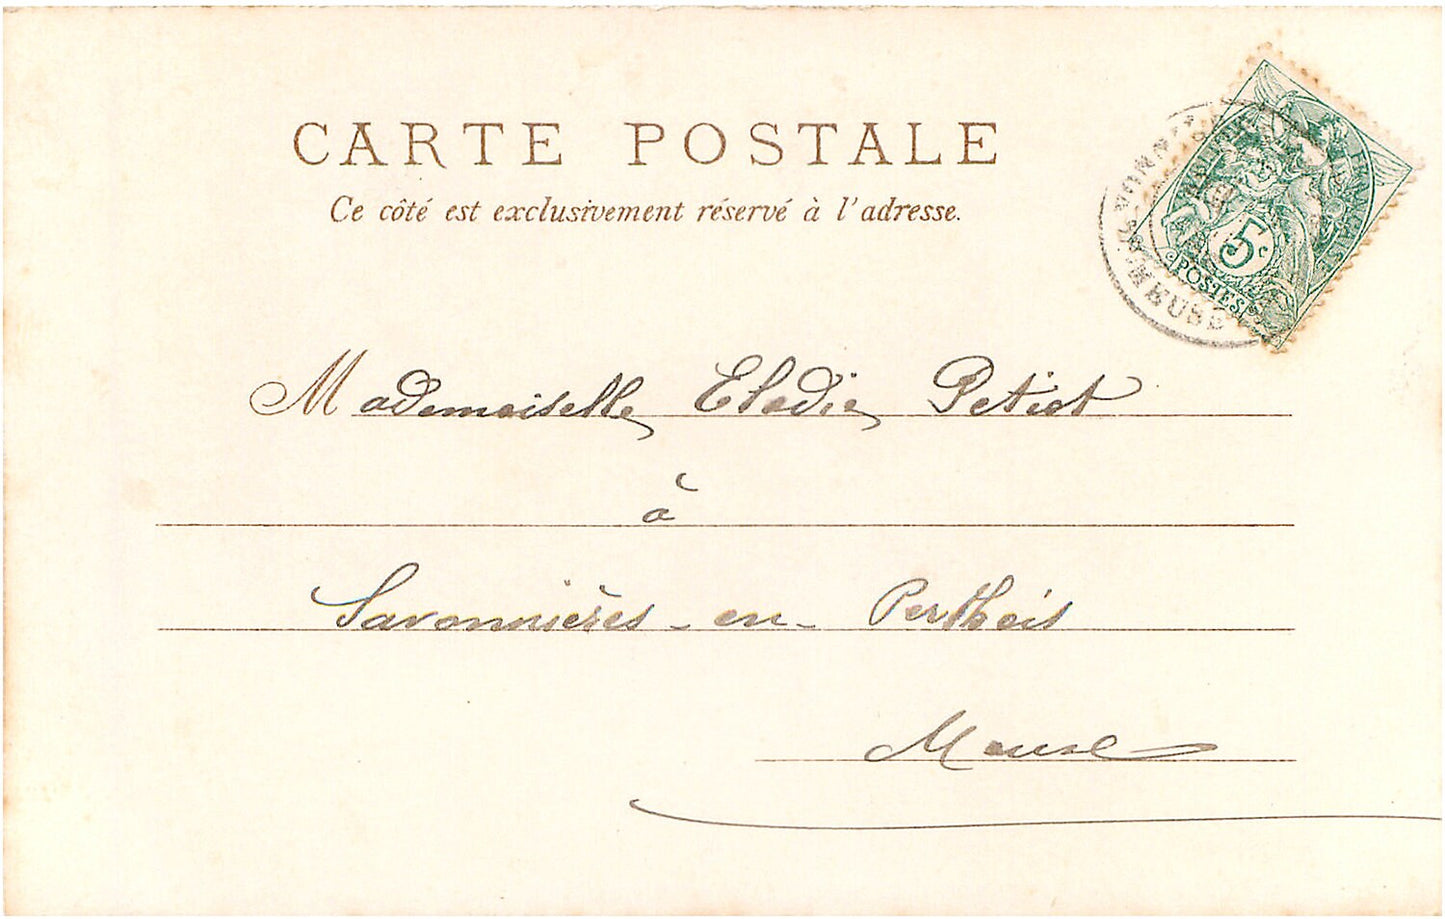 CARTE POSTALE
Ce côté est exclusivement réservé à l'adresse.
5c
POSTES
MEUSE
Mademoiselle Elodie Petiot
à
Savonnières-en-Perthois
Meuse